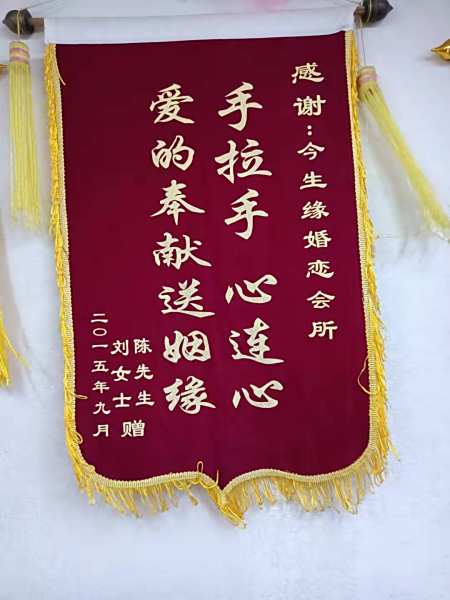 感谢：今生缘婚恋会所
手拉手 心连心
爱的奉献送姻缘
陈先生
刘女士 赠
二〇一五年九月